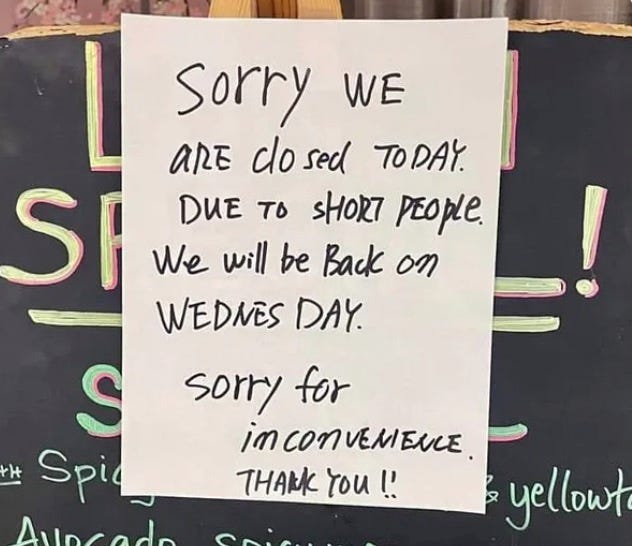 Sorry WE
ARE closed TODAY.
DUE TO SHORT PEOple.
We will be Back on
WEDNESDAY.
sorry for
inconVENIENCE.
THANK YOU !!
!
& yellowt
Avocado